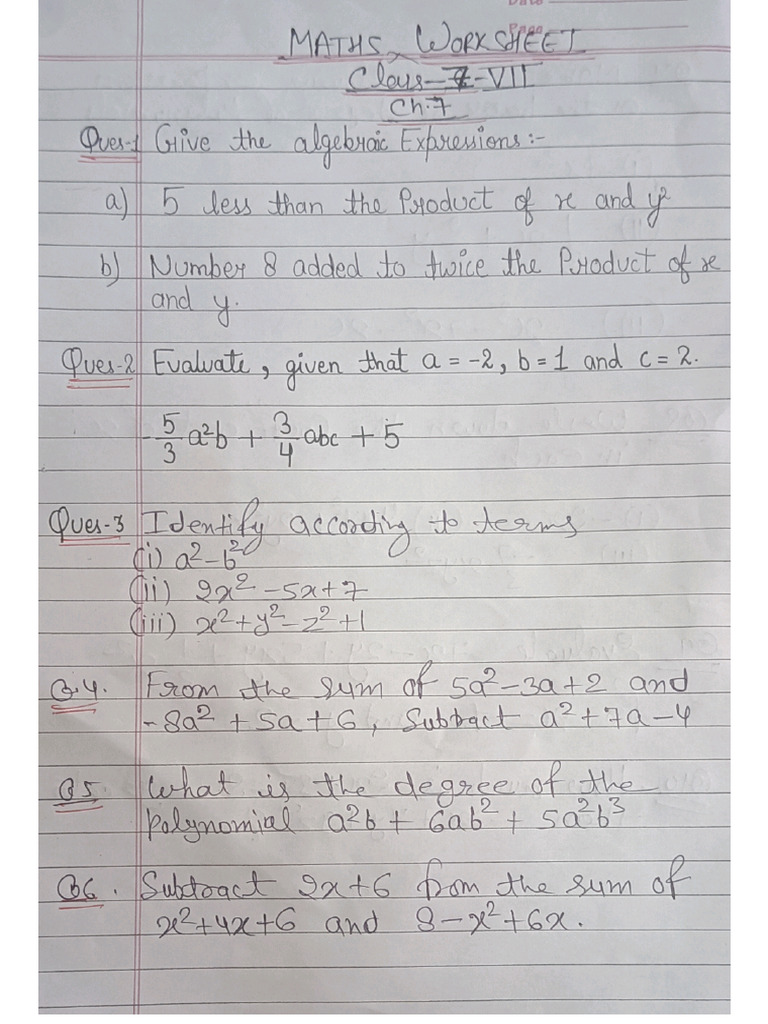 Date
Page
MATHS WORKSHEET
Class - VII
Ch.7
Ques-1 Give the algebraic Expressions:-
a) 5 less than the Product of x and y²
b) Number 8 added to twice the Product of x
and y.
Ques-2 Evaluate, given that a = -2, b = 1 and c = 2.
-5/3 a²b + 3/4 abc + 5
Ques-3 Identify according to terms
(i) a² - b²
(ii) 2x² - 5x + 7
(iii) x² + y² - z² + 1
Q.4. From the sum of 5a² - 3a + 2 and
-8a² + 5a + 6, Subtract a² + 7a - 4
Q5. What is the degree of the
polynomial a²b + 6ab² + 5a²b³
Q6. Subtract 2x + 6 from the sum of
x² + 4x + 6 and 8 - x² + 6x.